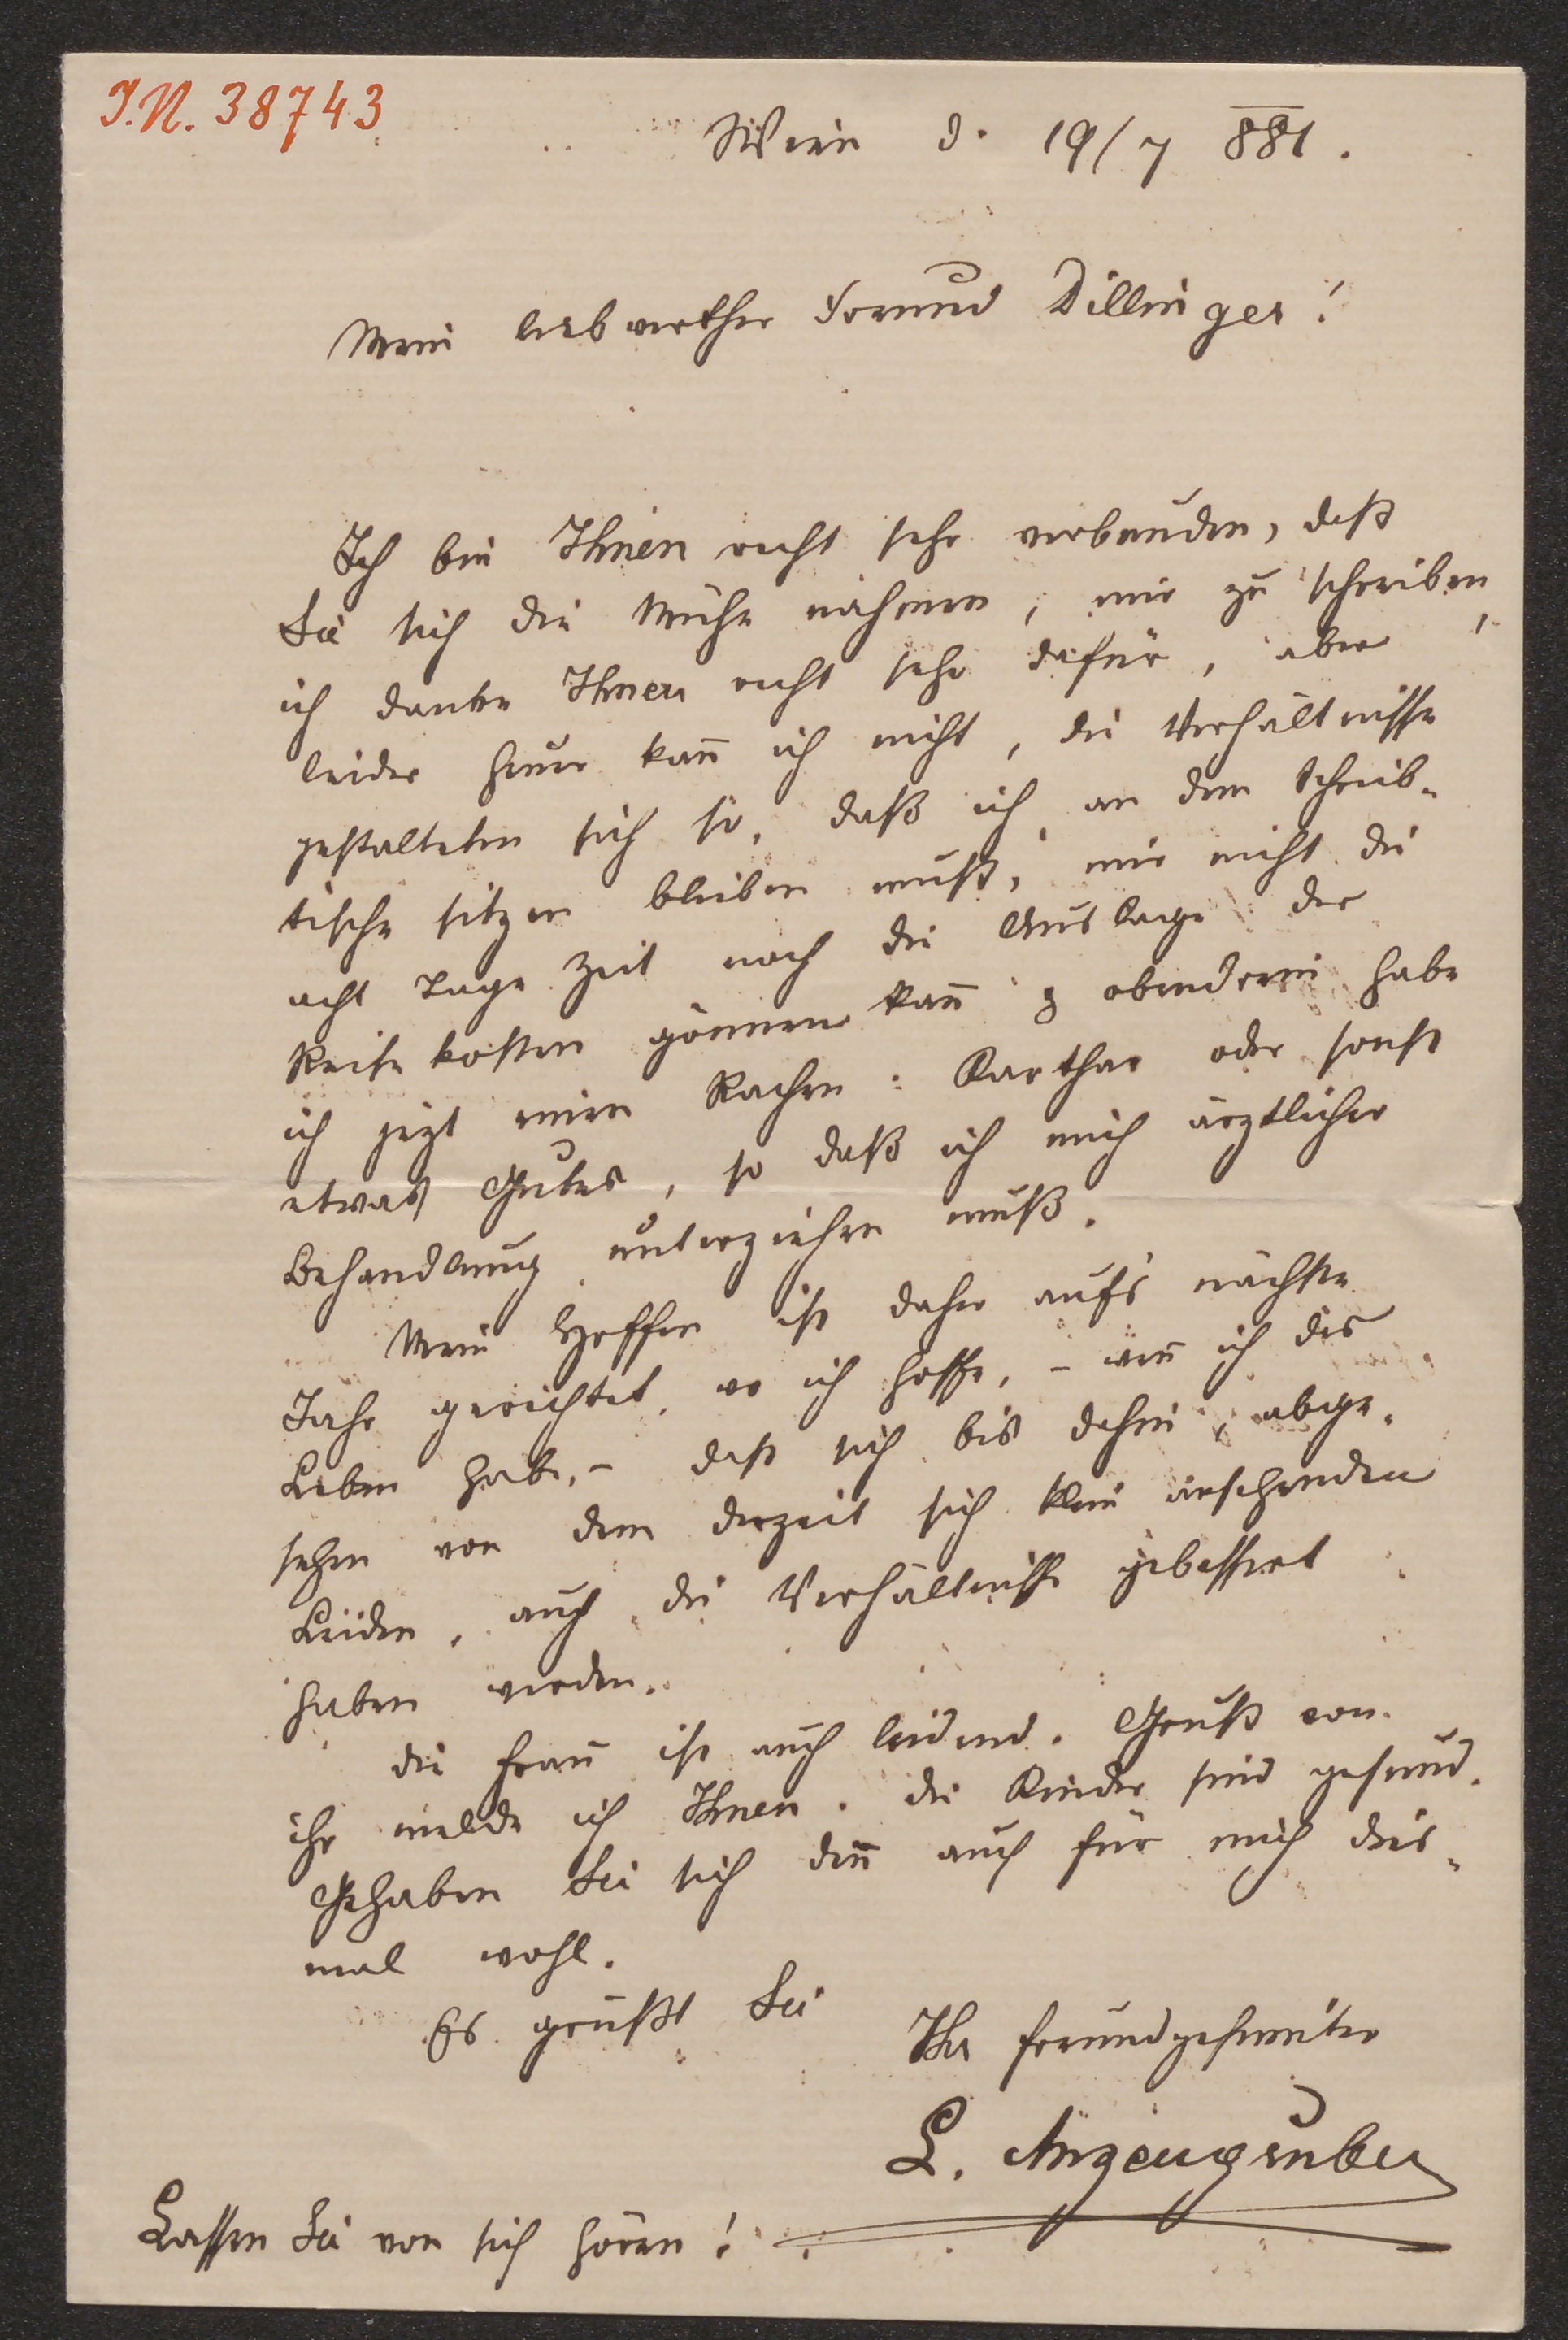 I.N. 38743
Wien d. 19/7 881.
Mein liebwerther Freund Dillinger!
Ich bin Ihnen recht sehr verbunden, daß
Sie sich die Mühe nahmen, mir zu schreiben,
ich danke Ihnen recht sehr dafür, aber
leider heuer kan̄ ich nicht, die Verhältnisse
gestalteten sich so, daß ich an dem Schreib-
tische sitzen bleiben muß, mir nicht die
acht Tage Zeit noch die Auslage der
Reisekosten gönnen kan̄ & obendrein habe
ich jezt einen Rachen-Karthar oder sonst
etwas Gutes, so daß ich mich ärztlicher
Behandlung unterziehen muß.
Mein Hoffen ist daher auf's nächste
Jahr gerichtet, wo ich hoffe, – wen̄ ich das
Leben habe, – daß sich bis dahin, abge-
sehen von dem derzeit sich klein ansehenden
Leiden, auch die Verhältnisse gebessert
haben werden.
Die Frau ist auch leidend. Gruß von
ihr melde ich Ihnen. Die Kinder sind gesund.
Gehaben Sie sich den̄ auch für mich dies-
mal wohl.
Es grüßt Sie
Ihr freundgesinnter
L. Anzengruber
Lassen Sie von sich hören!